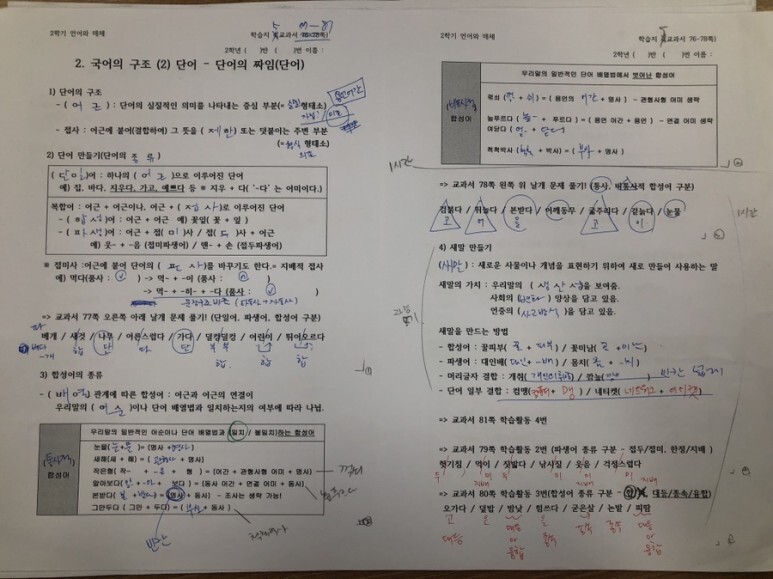 2학기 언어와 매체
학습지 교과서 76-78쪽)
2학년 ( )반 ( )번 이름 :
2. 국어의 구조 (2) 단어 - 단어의 짜임(단어)
1) 단어의 구조
- ( 어근 ) : 단어의 실질적인 의미를 나타내는 중심 부분(= 실질 형태소)
- 접사 : 어근에 붙어(결합하여) 그 뜻을 ( 제한 ) 또는 덧붙이는 주변 부분
(= 형식 형태소)
2) 단어 만들기(단어의 종류 )
( 단일 )어 : 하나의 ( 어근 )으로 이루어진 단어
예) 집, 바다, 지우다, 가고, 예쁘다 등 ※ 지우 + 다( '-다' 는 어미이다.)
복합어 : 어근 + 어근이나, 어근 + ( 접사 )로 이루어진 단어
- ( 합성 )어 : 어근 + 어근 예) 꽃잎( 꽃 + 잎 )
- ( 파생 )어 : 어근 + 접( 미 )사 / 접( 두 )사 + 어근
예) 웃- + -음 (접미파생어) / 맨- + 손 (접두파생어)
※ 접미사 : 어근에 붙어 단어의 ( 품사 )를 바꾸기도 한다.= 지배적 접사
예) 먹다(품사 : ) -> 먹- + -이 (품사 : )
-> 먹- + -히- + -다 (품사 : )
=> 교과서 77쪽 오른쪽 아래 날개 문제 풀기! (단일어, 파생어, 합성어 구분)
베개 / 새것 / 나무 / 어른스럽다 / 가다 / 덜컹덜컹 / 어린이 / 뛰어오르다
파 합 단 파 단 합 합
3) 합성어의 종류
- ( 배열 )관계에 따른 합성어 : 어근과 어근의 연결이
우리말의 ( 어순 )이나 단어 배열법과 일치하는지의 여부에 따라 나뉨.
우리말의 일반적인 어순이나 단어 배열법과 (일치 / 불일치)하는 합성어
(통사적)
합성어
눈물(눈+물) = (명사 +명사)
새해(새 + 해) = ( 관형사 + 명사)
작은형( 작- + -은 + 형 ) = (어간 + 관형사형 어미 + 명사)
알아보다( 알- + -아 + 보다 ) = (동사 어간 + 연결 어미 + 동사)
본받다( 본 + 받다 ) = (명사 + 동사) - 조사는 생략 가능!
그만두다 ( 그만 + 두다 ) = ( 부사 + 동사)
2학기 언어와 매체
학습지 교과서 76-78쪽)
2학년 ( )반 ( )번 이름 :
우리말의 일반적인 단어 배열법에서 벗어난 합성어
(비통사적)
합성어
꺾쇠 ( 꺾 + 쇠 ) = (용언의 어간 + 명사) - 관형사형 어미 생략
높푸르다 ( 높- + 푸르다 ) = (용언 어간 + 용언) - 연결 어미 생략
척척박사 (척척 + 박사) = ( 부사 + 명사)
1시간
=> 교과서 78쪽 왼쪽 위 날개 문제 풀기! (통사, 비통사적 합성어 구분)
검붉다 / 뛰놀다 / 본받다 / 어깨동무 / 굶주리다 / 겉늙다 / 눈물
고 어 을 고 이
1시간
4) 새말 만들기
(새말) : 새로운 사물이나 개념을 표현하기 위하여 새로 만들어 사용하는 말
새말의 가치 : 우리말의 ( 생산성 )을 보여줌.
사회의 (변화) 양상을 담고 있음.
언중의 (사고방식)을 담고 있음.
새말을 만드는 방법
- 합성어 : 꿀피부( 꿀 + 피부) / 꽃미남( 꽃 +미남 )
- 파생어 : 대인배(대인+ -배) / 움치( 춤 + -치)
- 머리글자 결합 : 개취(개인의취향) / 깜놀( )
- 단어 일부 결합 : 컴맹( + 맹) / 네티켓( 네트워크 + 에티켓)
=> 교과서 81쪽 학습활동 4번
=> 교과서 79쪽 학습활동 2번 (파생어 종류 구분 - 접두/접미, 한정/지배 )
헛기침 / 먹이 / 짓밟다 / 낚시질 / 웃음 / 걱정스럽다
두 미 두 미 미 미
지배 지배 지배
=> 교과서 80쪽 학습활동 3번(합성어 종류 구분 - 대등/종속/융합)
오가다 / 덮밥 / 밤낮 / 힘쓰다 / 굳은살 / 논밭 / 피땀
대등 종속 대등 or 융합 종속 종속 대등 대등 or 융합